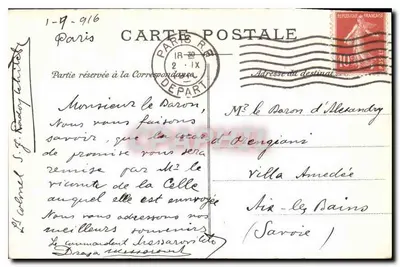 1-9-916
Paris
CARTE POSTALE
PARIS R.P.
18
2 . IX
DÉPART
RÉPUBLIQUE FRANÇAISE
10
Partie réservée à la Correspondance
Adresse du destinataire
Monsieur le Baron,
Nous vous faisons
savoir, que la
de promise vous sera
remise par Mr le
vicomte de la Celle
auquel elle est envoyée
Nous vous adressons nos
meilleurs souvenirs
Le commandant
Draga
Lt Colonel
Mr le Baron d'Alexandry
d'Orengiani
Villa Amedée
Aix-les-Bains
(Savoie)